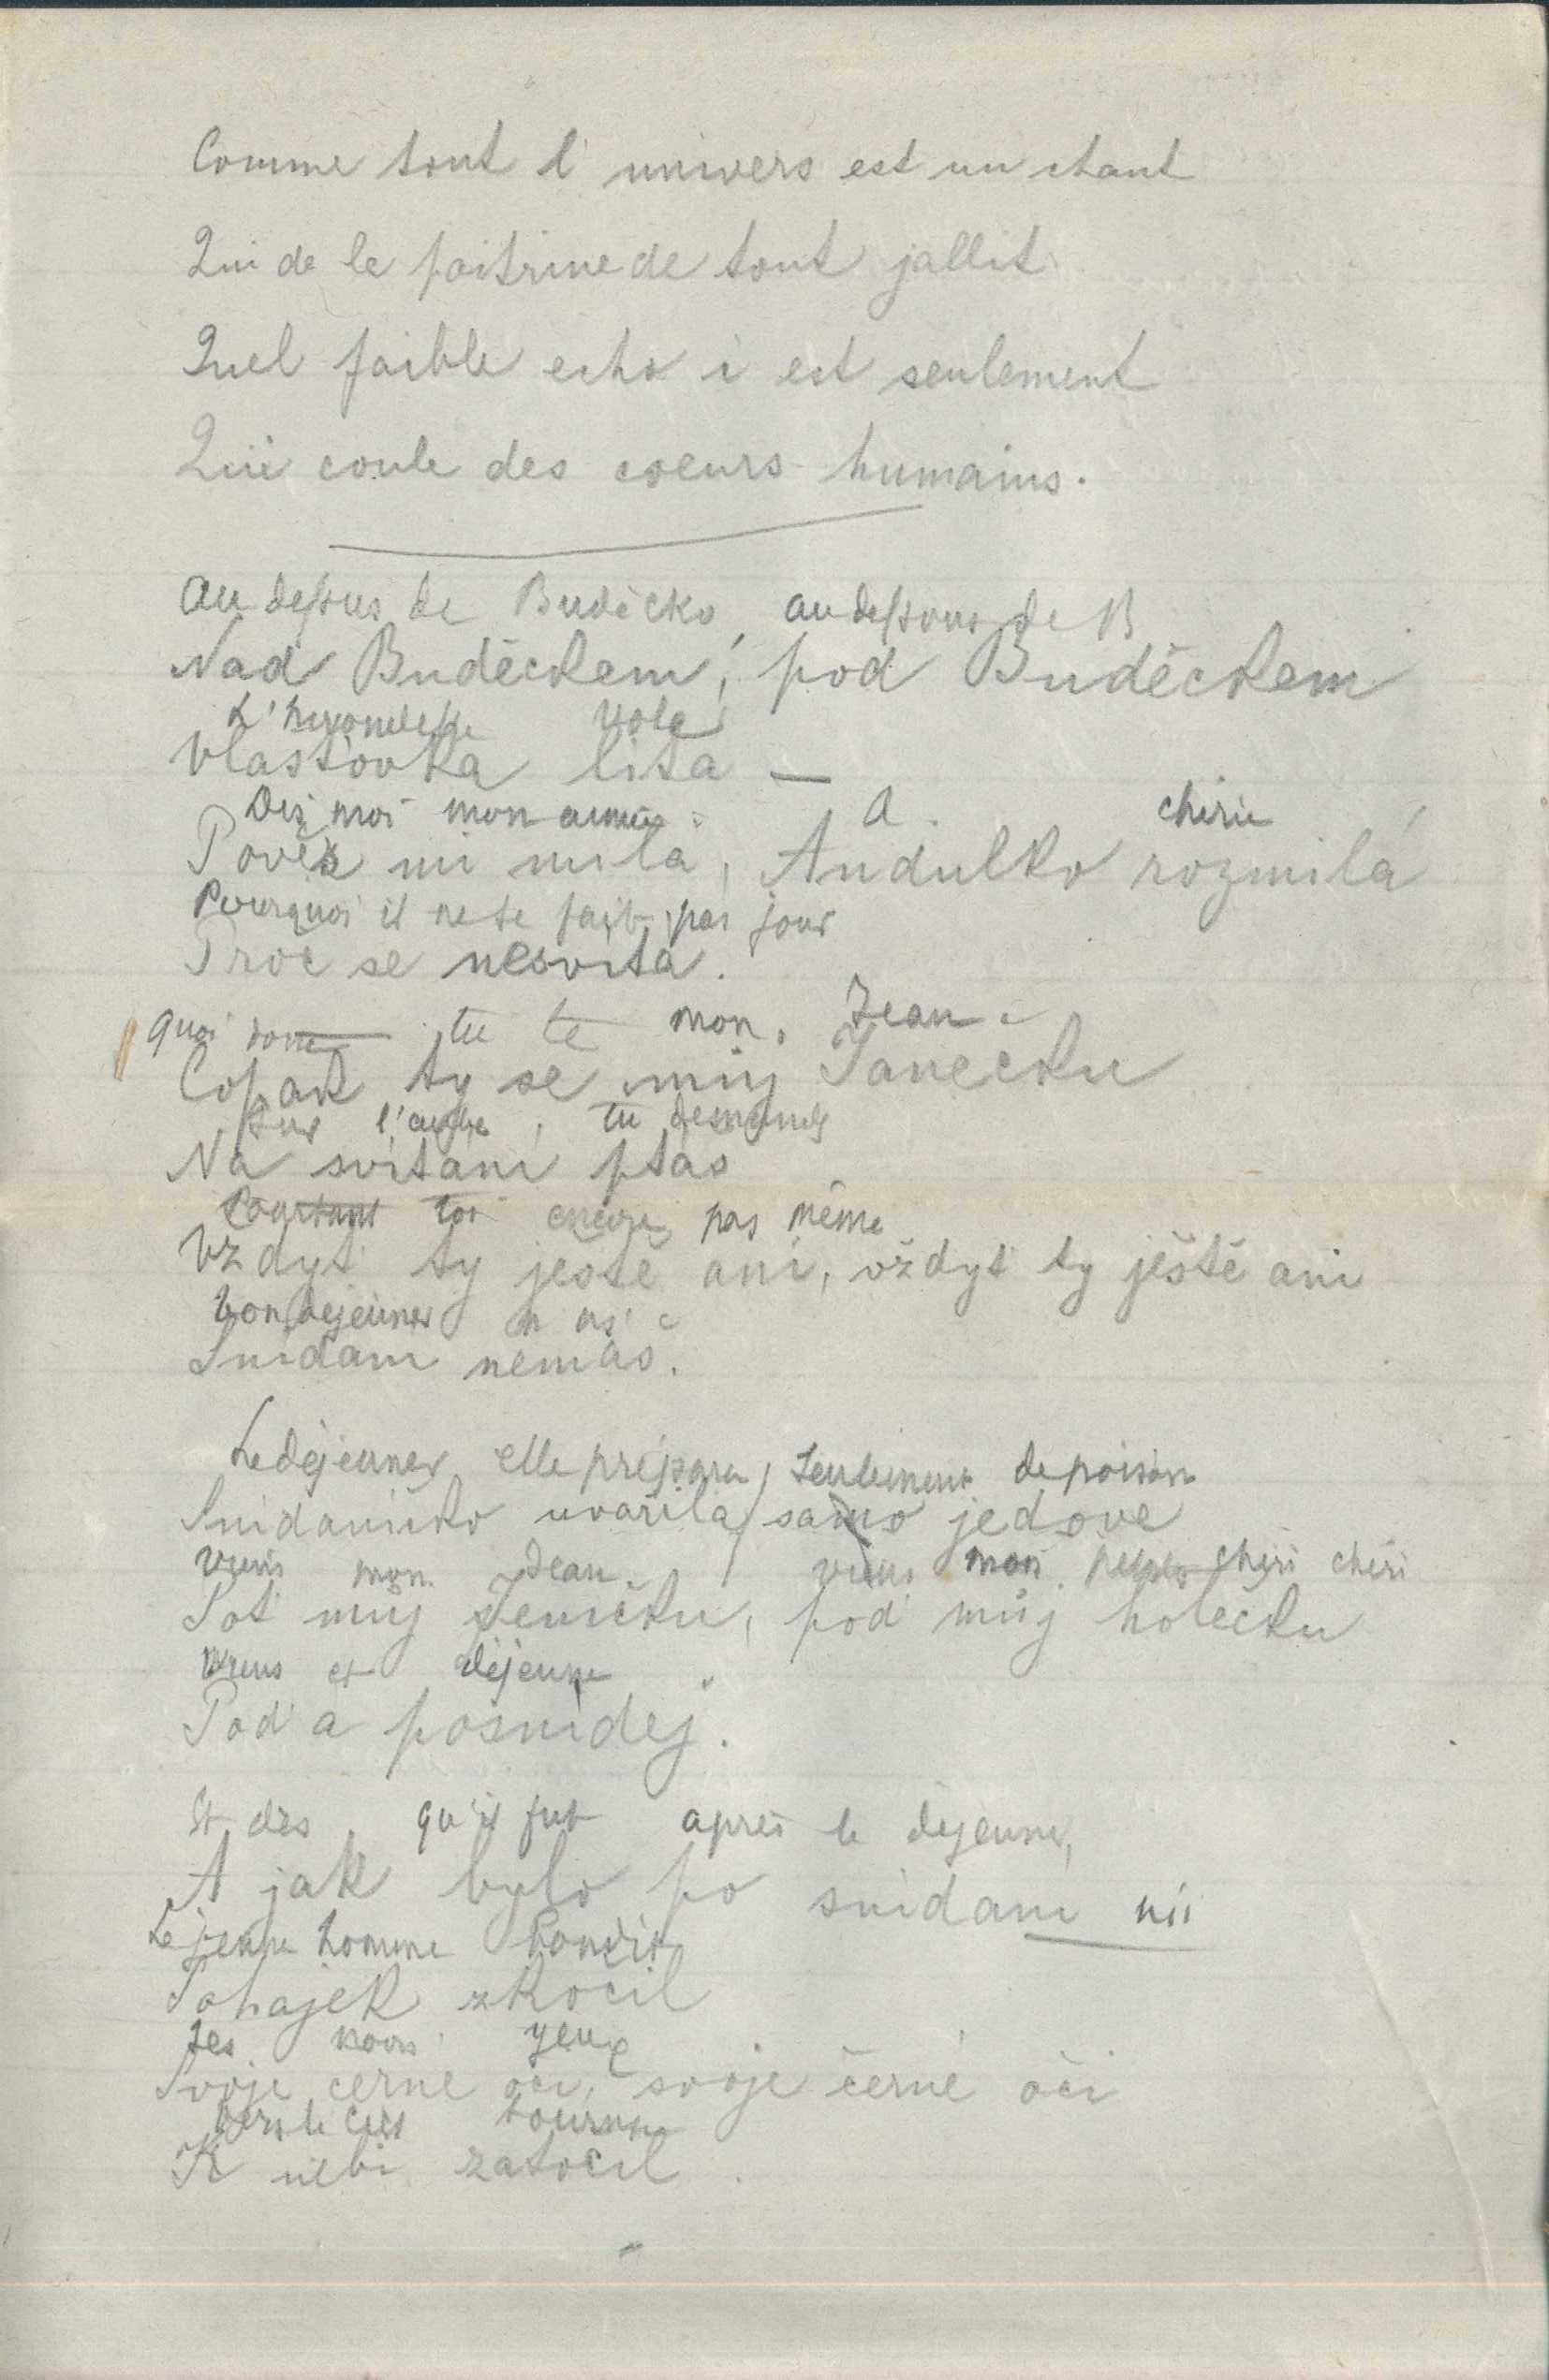 Comme tout l'univers est un chant
Qui de le poitrine de tout jallit
Quel faible echo c est seulement
Qui coule des coeurs humains.
Au dessus de Budečko, au dessous de B
Nad Buděckem, pod Buděckem
L'hirondelle vole
Vlaštovka lítá —
Dis moi mon aimée A. chérie
Pověz mi milá, Andulko rozmilá
Pourquoi il ne se fait pas jour
Proč se nesvítá.
Quoi donc tu te mon Jean
Copak ty se můj Janečku
Sur l'aube, tu demandes
Na svítání ptáš
Pourtant toi encore pas même
Vždyt ty ješte ani, vždyt ty ještě ani
ton déjeuner n as
Snídani nemáš.
Le déjeuner elle prépara, seulement de poison
Snídaničko uvařila, samo jedove
viens mon Jean. viens mon chéri chéri
Pot můj Jeničku, pod můj holečku
viens et déjeune
Pod a posnídej.
Et dès qu'il fut après le déjeuner,
A jak bylo po snídani ní
Le jeune homme bondit
Pohajek zkočil
Ses noirs yeux
Svoje černe oči, svoje černé oči
vers le ciel tourna
K nebi zatočil